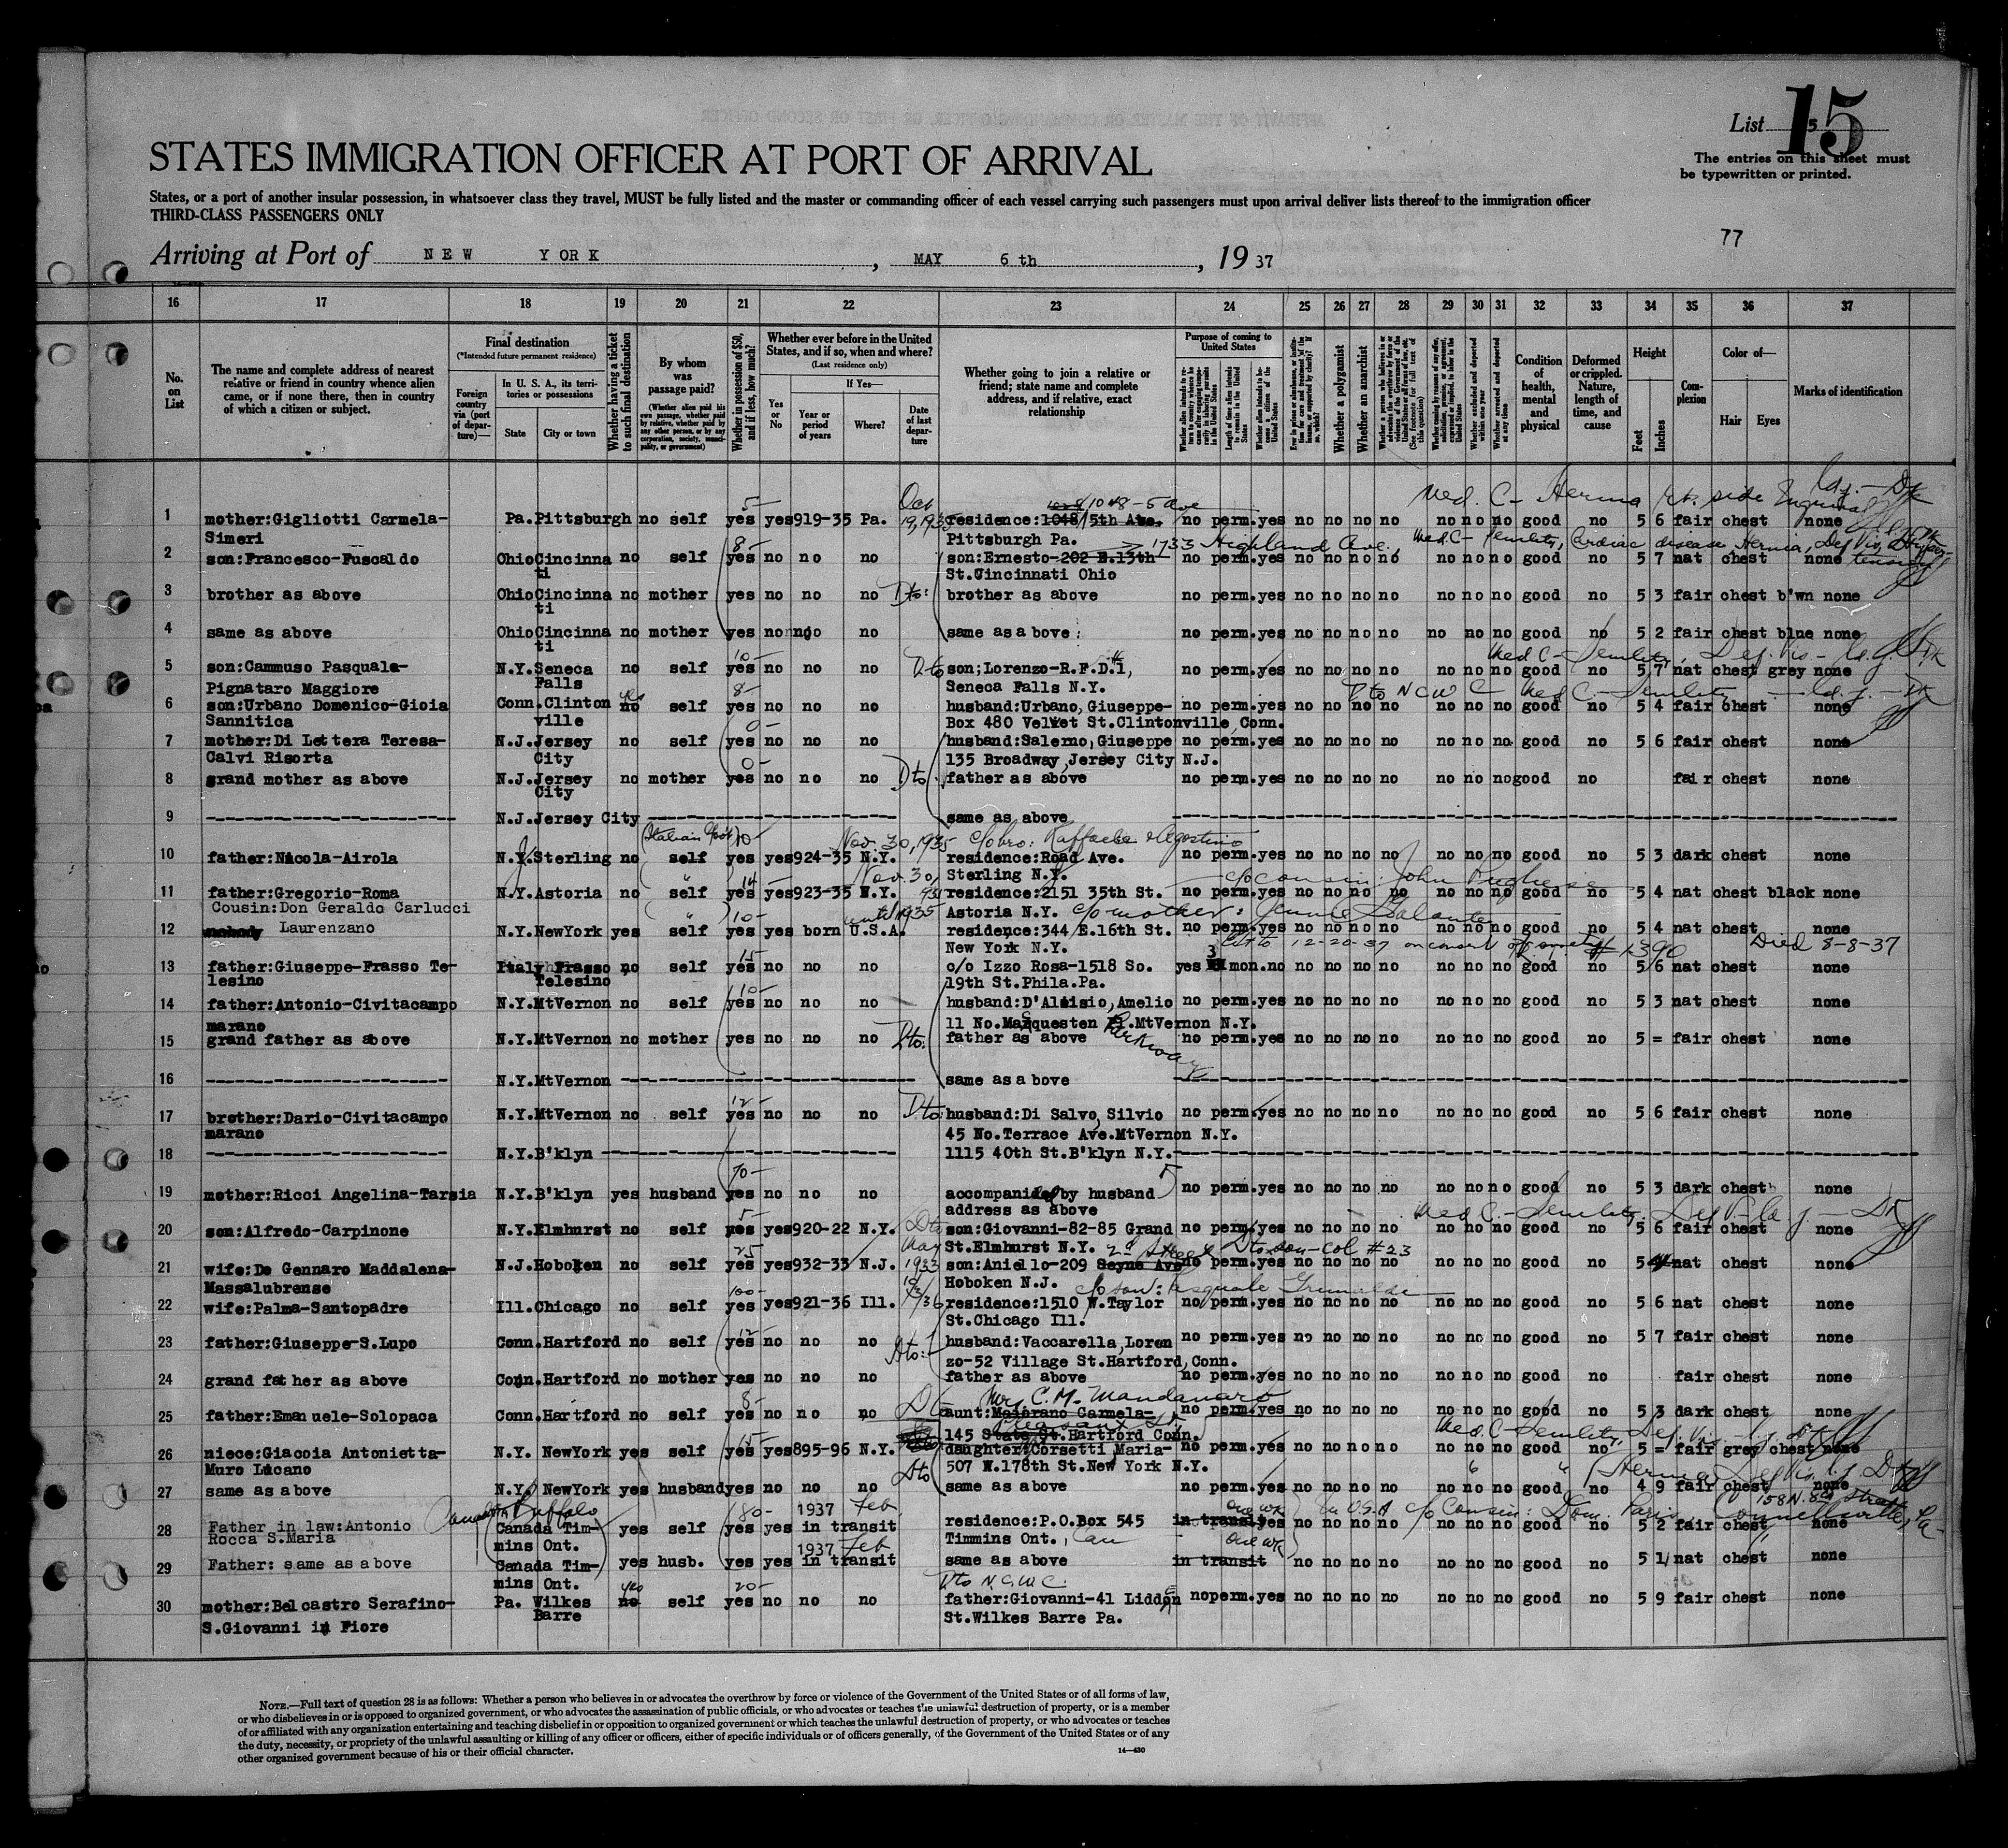 List 5
15
The entries on this sheet must
be typewritten or printed.
STATES IMMIGRATION OFFICER AT PORT OF ARRIVAL
States, or a port of another insular possession, in whatsoever class they travel, MUST be fully listed and the master or commanding officer of each vessel carrying such passengers must upon arrival deliver lists thereof to the immigration officer
THIRD-CLASS PASSENGERS ONLY
77
Arriving at Port of NEW YORK, MAY 6th, 1937
16 17 18 19 20 21 22 23 24 25 26 27 28 29 30 31 32 33 34 35 36 37
No. on List
The name and complete address of nearest relative or friend in country whence alien came, or if none there, then in country of which a citizen or subject.
Final destination
(*Intended future permanent residence)
Foreign country via (port of departure)—
In U. S. A., its territories or possessions
State City or town
Whether having a ticket to such final destination
By whom was passage paid?
(Whether alien paid his own passage, whether paid by relative, whether paid by any other person, or by any corporation, society, municipality, or government)
Whether in possession of $50, and if less, how much?
Whether ever before in the United States, and if so, when and where?
(Last residence only)
Yes or No
If Yes—
Year or period of years
Where?
Date of last departure
Whether going to join a relative or friend; state name and complete address, and if relative, exact relationship
Purpose of coming to United States
Length of time alien intends to remain in the United States
Whether alien intends to become a citizen of the United States
Whether a polygamist
Whether an anarchist
Condition of health, mental and physical
Deformed or crippled. Nature, length of time, and cause
Height
Feet Inches
Complexion
Color of—
Hair Eyes
Marks of identification
Med. C- Hernia rt. side Inguinal
Oct 19, 1935 5- 1048-5 ave
1 mother:Gigliotti Carmela- Pa. Pittsburgh no self yes yes 919-35 Pa. residence:1048/5th Ave. no perm. yes no no no no no no no good no 5 6 fair chest none
Simeri Pittsburgh Pa.
8- 1733 Highland Ave., Med. C- Senility, Cardiac disease, Hernia, Def Vis, Hypertension
2 son:Francesco-Fuscaldo Ohio Cincinnati no self yes no no no son:Ernesto-202 E.13th no perm. yes no no no no no no no good no 5 7 nat chest none
St.Cincinnati Ohio
3 brother as above Ohio Cincinnati no mother yes no no no Dto: brother as above no perm. yes no no no no no no no good no 5 3 fair chest b'wn none
4 same as above Ohio Cincinnati no mother yes no no no same as above: no perm. yes no no no no no no no good no 5 2 fair chest blue none
10- Med C- Senility, Def. Vis-
5 son:Cammuso Pasquale- N.Y. Seneca Falls no self yes no no no Dto son;Lorenzo-R.F.D.1, no perm. yes no no no no no no no good no 5 7 nat chest grey none
Pignataro Maggiore Seneca Falls N.Y.
8- Dto NCWC Med C- Senility
6 son:Urbano Domenico-Gioia Conn. Clintonville yes no self yes no no no husband:Urbano,Giuseppe- no perm. yes no no no no no no no good no 5 4 fair chest none
Sannitica Box 480 Velvet St.Clintonville,Conn.
0-
7 mother:Di Lettera Teresa- N.J. Jersey City no self yes no no no husband:Salerno,Giuseppe no perm. yes no no no no no no no good no 5 6 fair chest none
Calvi Risorta 135 Broadway,Jersey City N.J.
0-
8 grand mother as above N.J. Jersey City no mother yes no no no Dto father as above no perm. yes no no no no no no no good no fair chest none
9 N.J. Jersey City same as above
(Italian Govt) 10- Nov. 30, 1935 c/o bro: Raffaele
10 father:Nicola-Airola N.J. Sterling no self yes yes 924-35 N.Y. residence:Road Ave. no perm. yes no no no no no no no good no 5 3 dark chest none
Sterling N.Y.
14- Nov. 30, c/o cousin: John
11 father:Gregorio-Roma N.Y. Astoria no self yes yes 923-35 N.Y. residence:2151 35th St. no perm. yes no no no no no no no good no 5 4 nat chest black none
Astoria N.Y. c/o mother: Jennie
Cousin:Don Geraldo Carlucci
12 nobody Laurenzano N.Y. NewYork yes self 10- yes yes born U.S.A. until 1935 residence:344/E.16th St. no perm. yes no no no no no no no good no 5 4 nat chest none
New York N.Y. 12-20-37 # 1390 Died 8-8-37
15-
13 father:Giuseppe-Frasso Te- Italy Frasso Telesino no self yes no no no c/o Izzo Rosa-1518 So. yes 3 mon. no no no no no no no no good no 5/6 nat chest none
lesino 19th St.Phila.Pa.
10-
14 father:Antonio-Civitacampo N.Y. MtVernon no self yes no no no husband:D'Aloisio,Amelio no perm. yes no no no no no no no good no 5 3 nat chest none
marano 11 No.Macquesten Parkway MtVernon N.Y.
15 grand father as above N.Y. MtVernon no mother yes no no no Dto: father as above no perm. yes no no no no no no no good no 5 = fair chest none
16 N.Y. MtVernon same as above
12-
17 brother:Dario-Civitacampo N.Y. MtVernon no self yes no no no Dto: husband:Di Salvo,Silvio no perm. yes no no no no no no no good no 5 6 fair chest none
marano 45 No.Terrace Ave.MtVernon N.Y.
18 N.Y. B'klyn 1115 40th St.B'klyn N.Y.
70-
19 mother:Ricci Angelina-Tarsia N.Y. B'klyn yes husband yes no no no accompanied by husband no perm. yes no no no no no no no good no 5 3 dark chest none
address as above
5- Med C.- Senility
20 son:Alfredo-Carpinone N.Y. Elmhurst no self yes yes 920-22 N.Y. Dto son:Giovanni-82-85 Grand no perm. yes no no no no no no no good no 5 6 fair chest none
St.Elmhurst N.Y. 2d Street Dto son-col #23
25 May 1933
21 wife:De Gennaro Maddalena- N.J. Hoboken no self yes yes 932-33 N.J. son:Aniello-209 no perm. yes no no no no no no no good no 5 4 nat chest none
Massalubrense Hoboken N.J. c/o son: Pasquale
100-
22 wife:Palma-Santopadre Ill. Chicago no self yes yes 921-36 Ill. residence:1510 W.Taylor no perm. yes no no no no no no no good no 5 6 nat chest none
St.Chicago Ill.
12-
23 father:Giuseppe-S.Lupo Conn. Hartford no self yes no no no husband:Vaccarella,Loren no perm. yes no no no no no no no good no 5 7 fair chest none
Dto: zo-52 Village St.Hartford,Conn.
24 grand father as above Conn. Hartford no mother yes no no no father as above no perm. yes no no no no no no no good no fair chest none
8- Mrs C.M. Mandanaro
25 father:Emanuele-Solopaca Conn. Hartford no self yes no no no Dto aunt:Maiorano Carmela- no perm. yes no no no no no no no good no 5 3 dark chest none
145 State St.Hartford Conn. Pleasant St.
15- Med. C- Senility, Def. Vis.
26 niece:Giacoia Antonietta- N.Y. NewYork yes self yes yes 895-96 N.Y. daughter:Corsetti Maria- no perm. yes no no no no no no no good no 5 = fair grey chest none
Muro Lucano 507 W.178th St.New York N.Y.
Hernia Def Vis.
27 same as above N.Y. NewYork yes husband yes no no no Dto same as above no perm. yes no no no no no no no good no 4 9 fair chest none
Buffalo 80- 1937 Feb one wk in U.S.A c/o Cousin: Dom. Paris 158 N. 8th Street Connellsville, Pa-
28 Father in law:Antonio Canada Timmins Ont. yes self yes yes in transit residence:P.O.Box 545 in transit yes no no no no no no no good no 5 2 fair chest none
Rocca S.Maria Timmins Ont., Can
1937 Feb one wk
29 Father: same as above Canada Timmins Ont. yes husb. yes yes in transit same as above in transit no no no no no no no good no 5 1/ nat chest none
yes 20- Dto N.C.W.C.
30 mother:Belcastro Serafino- Pa. Wilkes Barre no self yes no no no father:Giovanni-41 Lidden no perm. yes no no no no no no no good no 5 9 fair chest none
S.Giovanni in Fiore St.Wilkes Barre Pa.
NOTE.—Full text of question 28 is as follows: Whether a person who believes in or advocates the overthrow by force or violence of the Government of the United States or of all forms of law,
or who disbelieves in or is opposed to organized government, or who advocates the assassination of public officials, or who advocates or teaches the unlawful destruction of property, or is a member
of or affiliated with any organization entertaining and teaching disbelief in or opposition to organized government or which teaches the unlawful destruction of property, or who advocates or teaches
the duty, necessity, or propriety of the unlawful assaulting or killing of any officer or officers, either of specific individuals or of officers generally, of the Government of the United States or of any
other organized government because of his or their official character.
14—430